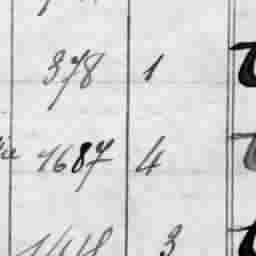 378 1
1687 4
1418 3